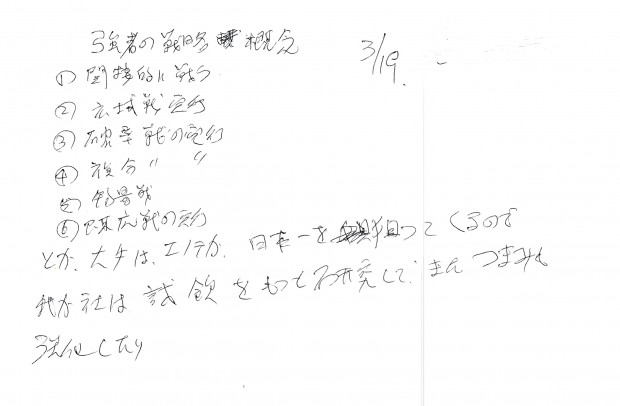 強者の戦略 概念
3/19.
① 間接的に戦う
② 広域戦 実行
③ 確率戦の実行
④ 複合 〃 〃
⑤ 物量戦
⑥ 戦の実行
とか. 大手は、エノテカ. 日本一を狙ってくるので
我が社は 試飲をもっと研究して. また つまみも
強化したり